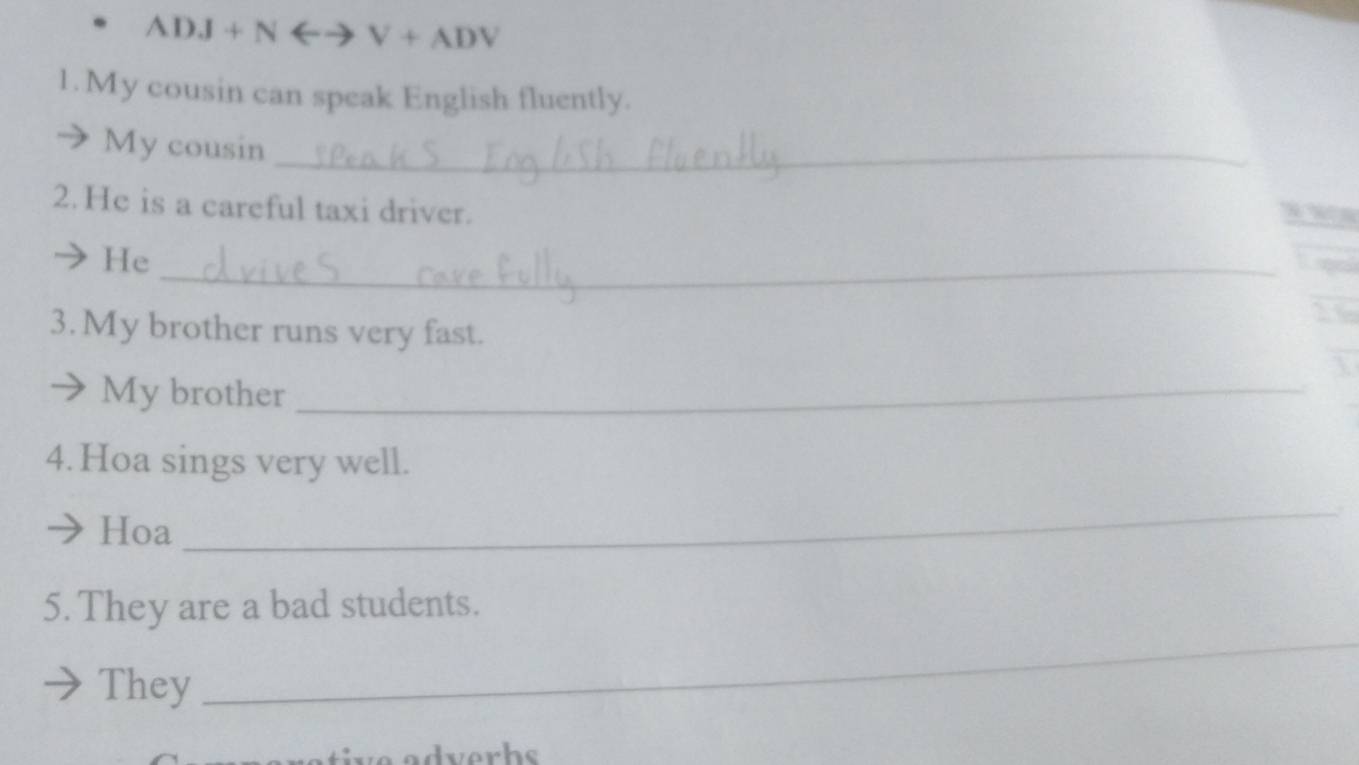 • ADJ + N ←→ V + ADV
1. My cousin can speak English fluently.
→ My cousin speaks English fluently
2. He is a careful taxi driver.
→ He drives carefully
3. My brother runs very fast.
→ My brother
4. Hoa sings very well.
→ Hoa
5. They are a bad students.
→ They
adverbs